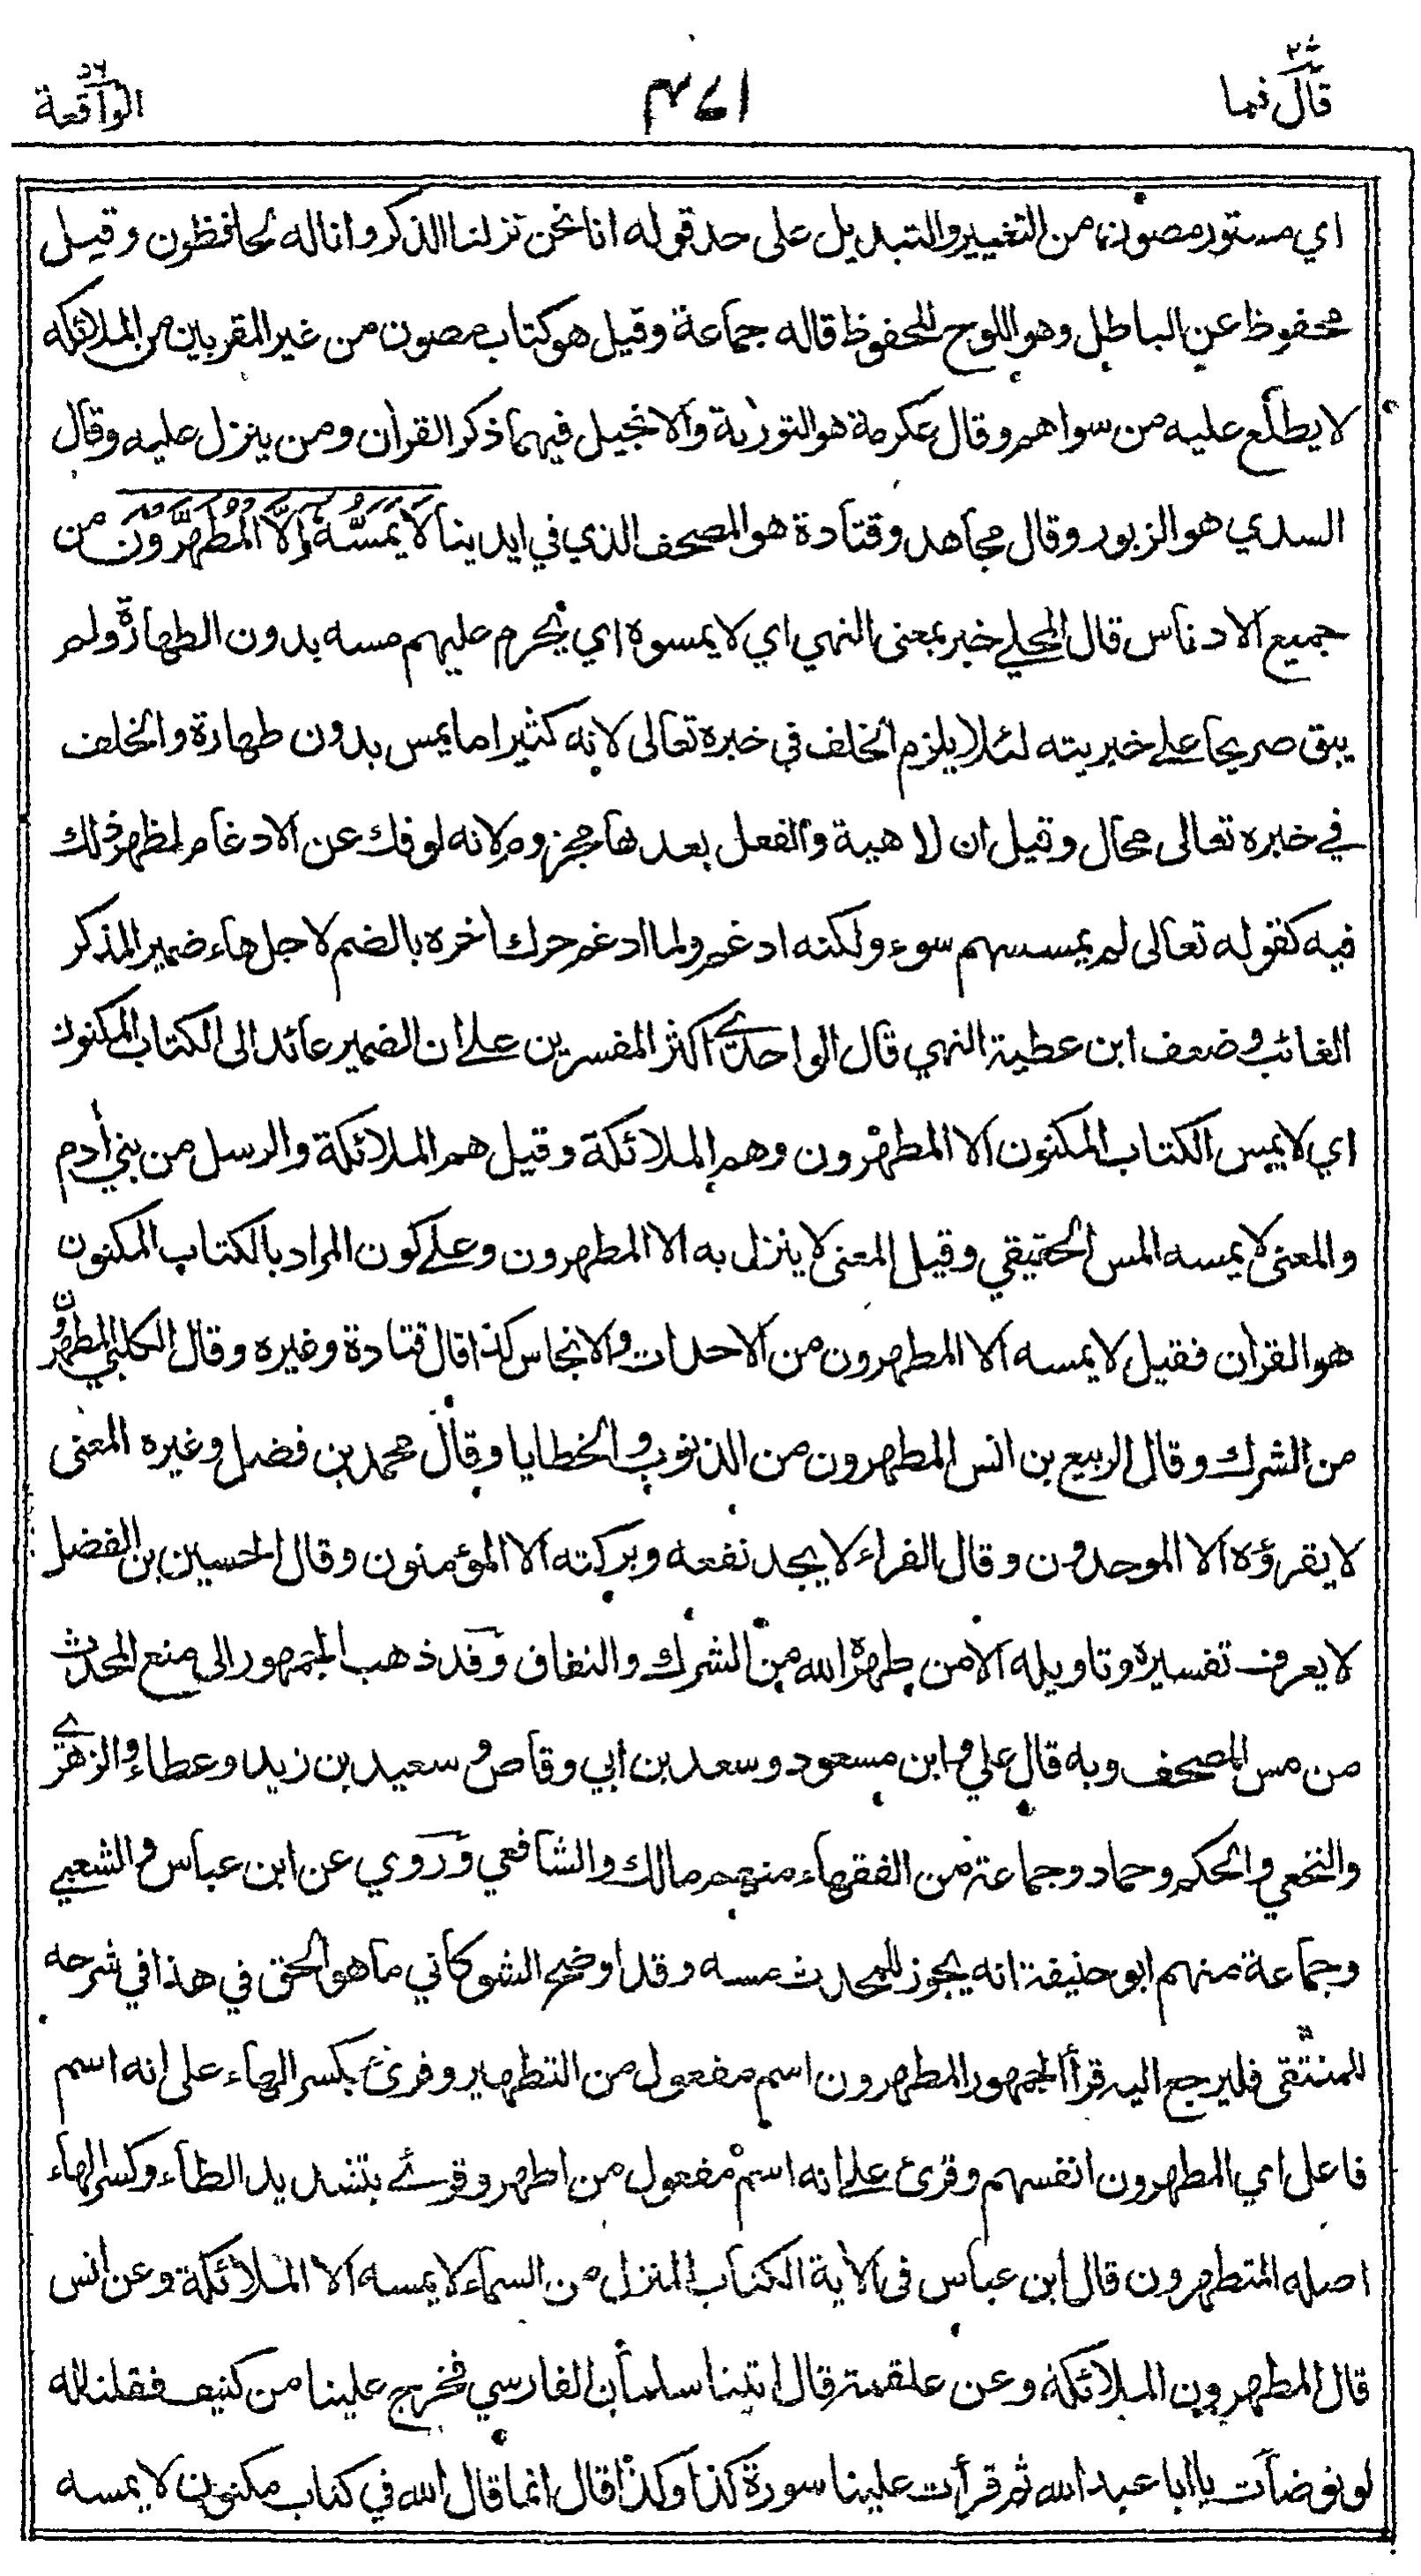 قال فما
١٧٤
الواقعة
٥٦
اي مستور مصون من التغيير والتبديل على حد قوله انا نحن نزلنا الذكر وانا له لحافظون وقيل
محفوظ عن الباطل وهو اللوح المحفوظ قاله جماعة وقيل هو كتاب مصون من غير المقربين من الملائكه
لا يطلع عليه من سواهم وقال عكرمة هو التورىة والانجيل فيهما ذكر القرأن ومن ينزل عليه وقال
السدي هو الزبور وقال مجاهد وقتادة هو المصحف الذي في ايدينا لَا يَمَسُّهُ إِلَّا الْمُطَهَّرُونَ من
جميع الادناس قال المحلي خبر بمعنى النهي اي لا يمسوه اي يحرم عليهم مسه بدون الطهارة ولم
يبق صريحا علے خبريته لئلا يلزم الخلف في خبره تعالى لانه كثيرا ما يمس بدون طهارة والخلف
في خبره تعالى محال وقيل ان لا هية والفعل بعدها مجزوم لانه لو فك عن الادغام لظهر ذلك
فيه كقوله تعالى لم يمسسهم سوء ولكنه ادغم ولما ادغم حرك أخره بالضم لاجل هاء ضمير المذكر
الغائب وضعف ابن عطية النهي قال الواحدے اكثر المفسرين علے ان الضمير عائد الى الكتاب المكنون
اي لا يمس الكتاب المكنون الا المطهرون وهم الملائكة وقيل هم الملائكة والرسل من بني أدم
والمعنى لا يمسه المس الحقيقي وقيل المعنى لا ينزل به الا المطهرون وعلے كون المراد بالكتاب المكنون
هو القرأن فقيل لا يمسه الا المطهرون من الاحداث والانجاس كذا قال قتادة وغيره وقال الكلبي المطهرون
من الشرك وقال الربيع بن انس المطهرون من الذنوب والخطايا وقال محمد بن فضل وغيره المعنى
لا يقرؤه الا الموحدون وقال الفراء لا يجد نفعه وبركته الا المؤمنون وقال الحسين بن الفضل
لا يعرف تفسيره وتاويله الا من طهره الله من الشرك والنفاق وقد ذهب الجمهور الى منع المحدث
من مس المصحف وبه قال علي وابن مسعود وسعد بن ابي وقاص وسعيد بن زيد وعطاء والزهرے
والنخعي والحكم وحماد وجماعة من الفقهاء منهم مالك والشافعي وروي عن ابن عباس والشعبي
وجماعة منهم ابو حنيفة انه يجوز للمحدث مسه وقد اوضح الشوكاني ما هو الحق في هذا في شرحه
للمنتقى فليرجع اليه قرأ الجمهور المطهرون اسم مفعول من التطهير وقرئ بكسر الهاء على انه اسم
فاعل اي المطهرون انفسهم وقرئ علے انه اسم مفعول من اطهر وقرئ بتشديد الطاء وكسر الهاء
اصله المتطهرون قال ابن عباس في الأية الكتاب المنزل من السماء لا يمسه الا الملائكة وعن انس
قال المطهرون الملائكة وعن علقمة قال اتينا سلمان الفارسي فخرج علينا من كنيف فقلنا له
لو توضأت يا ابا عبد الله ثم قرأت علينا سورة كذا وكذا قال انما قال الله في كتاب مكنون لا يمسه